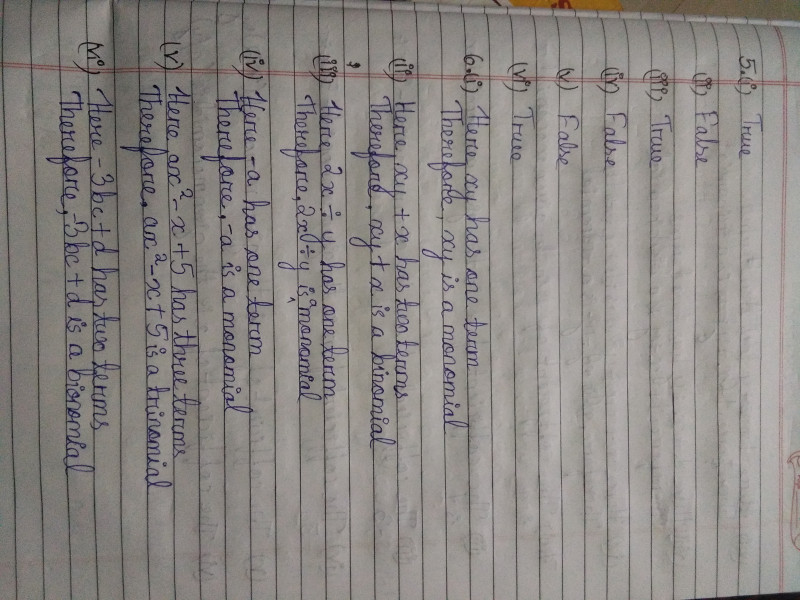 5.(i) True
(ii) False
(iii) True
(iv) False
(v) False
(vi) True
6.(i) Here xy has one term
Therefore, xy is a monomial
(ii) Here xy + x has two terms
Therefore, xy + x is a binomial
(iii) Here 2x ÷ y has one term
Therefore, 2x ÷ y is a monomial
(iv) Here -a has one term
Therefore, -a is a monomial
(v) Here ax² - x + 5 has three terms
Therefore, ax² - x + 5 is a trinomial
(vi) Here -3bc + d has two terms
Therefore, -3bc + d is a bionomial